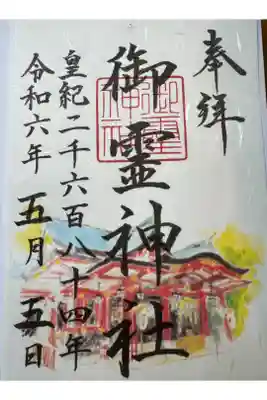 奉拜
御霊神社
御霊神社
皇紀二千六百八十四年
令和六年 五月 五日